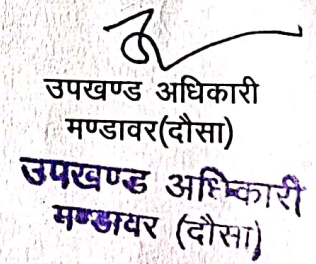 उपखण्ड अधिकारी
मण्डावर(दौसा)
उपखण्ड अधिकारी
मण्डावर (दौसा)